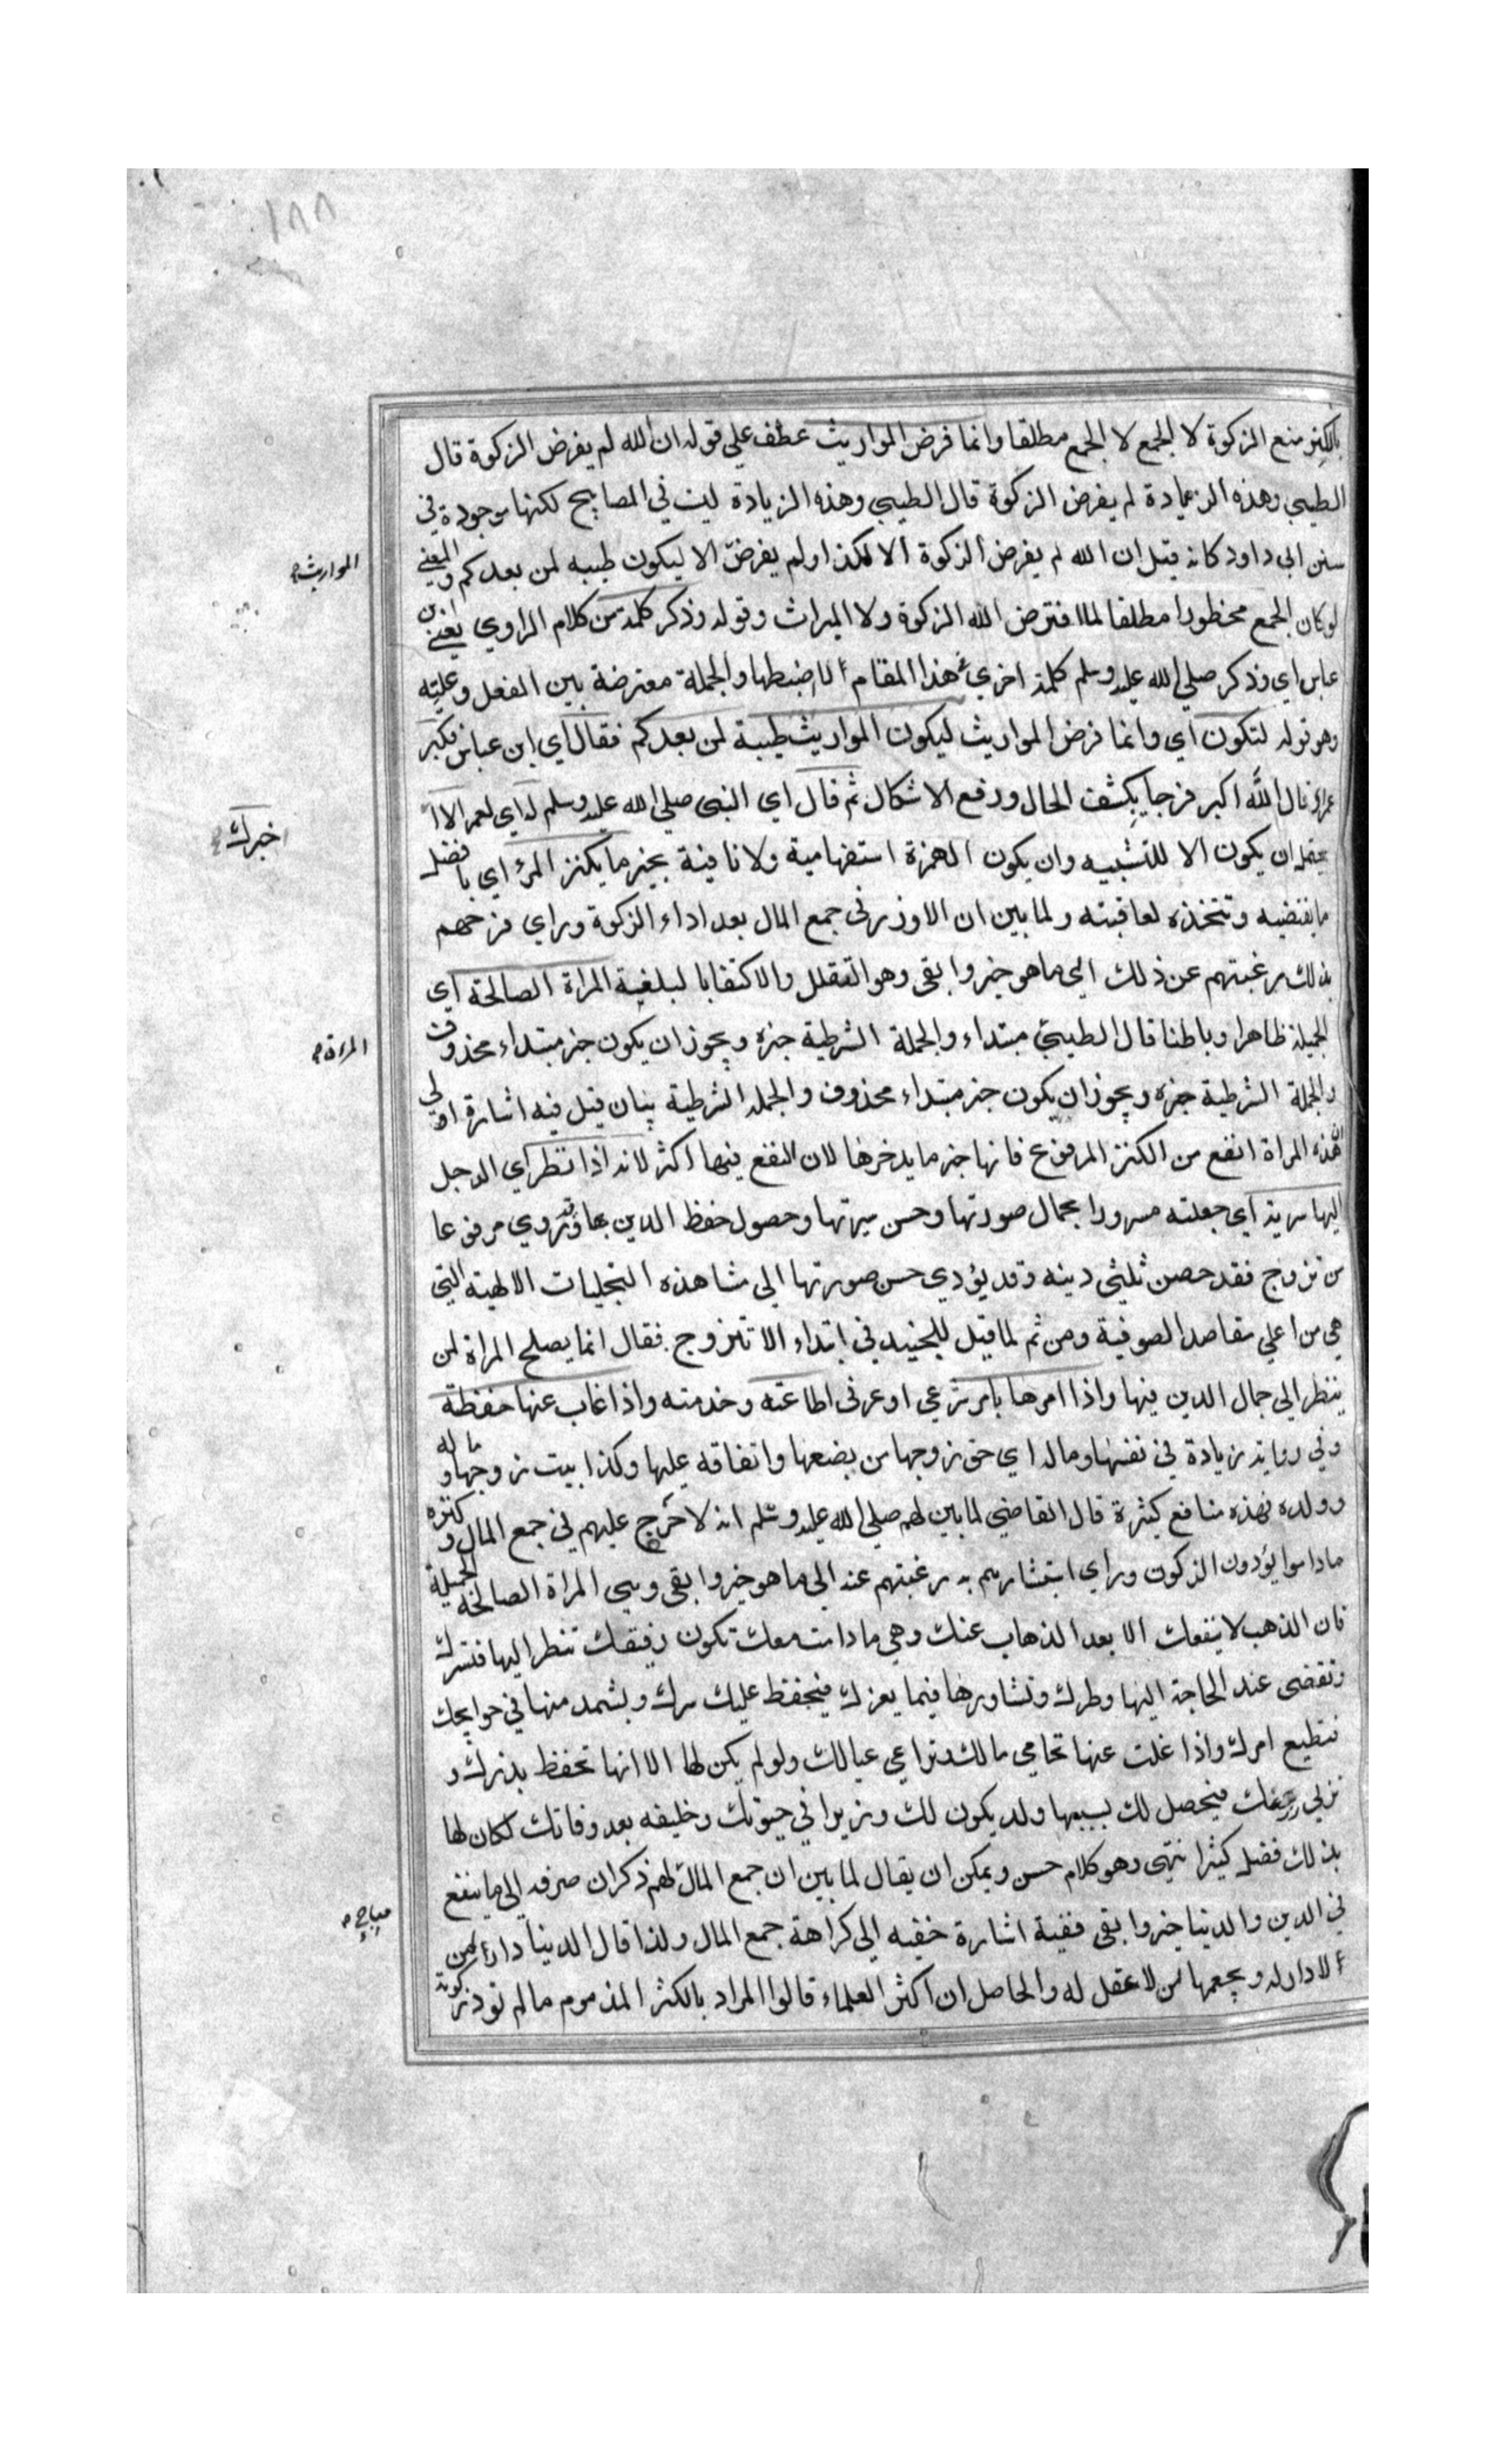 ١٨٨
بالكنز منع الزكوة لا الجمع لا الجمع مطلقا وانما فرض المواريث عطف على قوله ان الله لم يفرض الزكوة قال
الطيبي وهذه الزيادة لم يفرض الزكوة قال الطيبي وهذه الزيادة ليت في المصابيح لكنها موجودة في
سنن ابي داود كانه قيل ان الله لم يفرض الزكوة الا لكذا ولم يفرض الا ليكون طيبه لمن بعدكم والمعني
المواريث
لو كان الجمع محظورا مطلقا لما افترض الله الزكوة ولا الميراث وقوله وذكر كلمة من كلام الراوي يعني ابن
عباس اي وذكر صلي الله عليه وسلم كلمة اخري في هذا المقام لا اضبطها والجملة معترضة بين الفعل وعليته
وهو قوله لتكون اي وانما فرض المواريث ليكون المواريث طيبة لمن بعدكم فقال اي ابن عباس فكبر
عمر اي قال الله اكبر فرحا بكشف الحال ورفع الاشكال ثم قال اي النبي صلي الله عليه وسلم له اي لعمر الا
اخبرك
يحتمل ان يكون الا للتنبيه وان يكون الهمزة استفهامية ولا نافية بخير ما يكنز المرء اي بافضل
ما يقتضيه وتتخذه لعاقبته ولما بين ان لا وزر في جمع المال بعد اداء الزكوة وراي فرحهم
بذلك رغبتهم عن ذلك الي ما هو خير وابقى وهو التقلل والاكتفا بالبلغية المراة الصالحة اي
الجميلة ظاهرا وباطنا قال الطيبي مبتداء والجملة الشرطية خبره ويجوز ان يكون خبر مبتداء محذوف
المراة
والجملة الشرطية خبره ويجوز ان يكون خبر مبتداء محذوف والجملة الشرطية بيان قيل فيه اشارة الى
ان هذه المراة انفع من الكنز المرفوع فانها خير ما يدخرها لان النفع فيها اكثر لانه اذا نظر اي الرجل
اليها سرته اي جعلته مسرورا بجمال صورتها وحسن سيرتها وحصول حفظ الدين بها وقد روي مرفوعا
من تزوج فقد حصن ثلثي دينه وقد يؤدي حسن صورتها الي مشاهذه التجليات الالهية التي
هي من اعلي مقاصد الصوفية ومن ثم لما قيل للجنيد في ابتداء الا تتزوج فقال انما يصلح المراة لمن
ينظر الي جمال الدين فيها واذا امرها بامر شرعي او عرفي اطاعته وخدمته واذا غاب عنها حفظة
وفي رواية زيادة في نفسها وماله اي حق زوجها من بضعها وانفاقه عليها وكذا بيت زوجها وماله
وولده فهذه منافع كثيرة قال القاضي لما بين لهم صلي الله عليه وسلم انه لا حرج عليهم في جمع المال وكنزه
ماداموا يؤدون الزكون وراي استبشارهم به رغبتهم عنه الي ما هو خير وابقي وهي المراة الصالحة الجميلة
فان الذهب لا ينفعك الا بعد الذهاب عنك وهي ما دامت معك تكون رفيقك تنظر اليها فتسرك
وتقضى عند الحاجة اليها وطرك وتشاورها فيما يعزك فيحفظ عليك سرك ويستمد منها في حوايجك
فتطيع امرك واذا غلت عنها تحامي مالك وتراعي عيالك ولو لم يكن لها الا انها تحفظ بذرك و
تربي زرعك فيحصل لك بسببها ولد يكون لك وزيرا في حيوتك وخليفه بعد وفاتك لكان لها
بذلك فضل كثيرا نتهى وهو كلام حسن ويمكن ان يقال لما بين ان جمع المال لهم ذكر ان صرفه الي ما ينفع
مباح
في الدين والدنيا خير وابقى ففية اشارة خفيه الى كراهة جمع المال ولذا قال الدنيا دار من
لا دار له ويجمعها من لا عقل له والحاصل ان اكثر العلماء قالوا المراد بالكنز المذموم ما لم تود زكوته